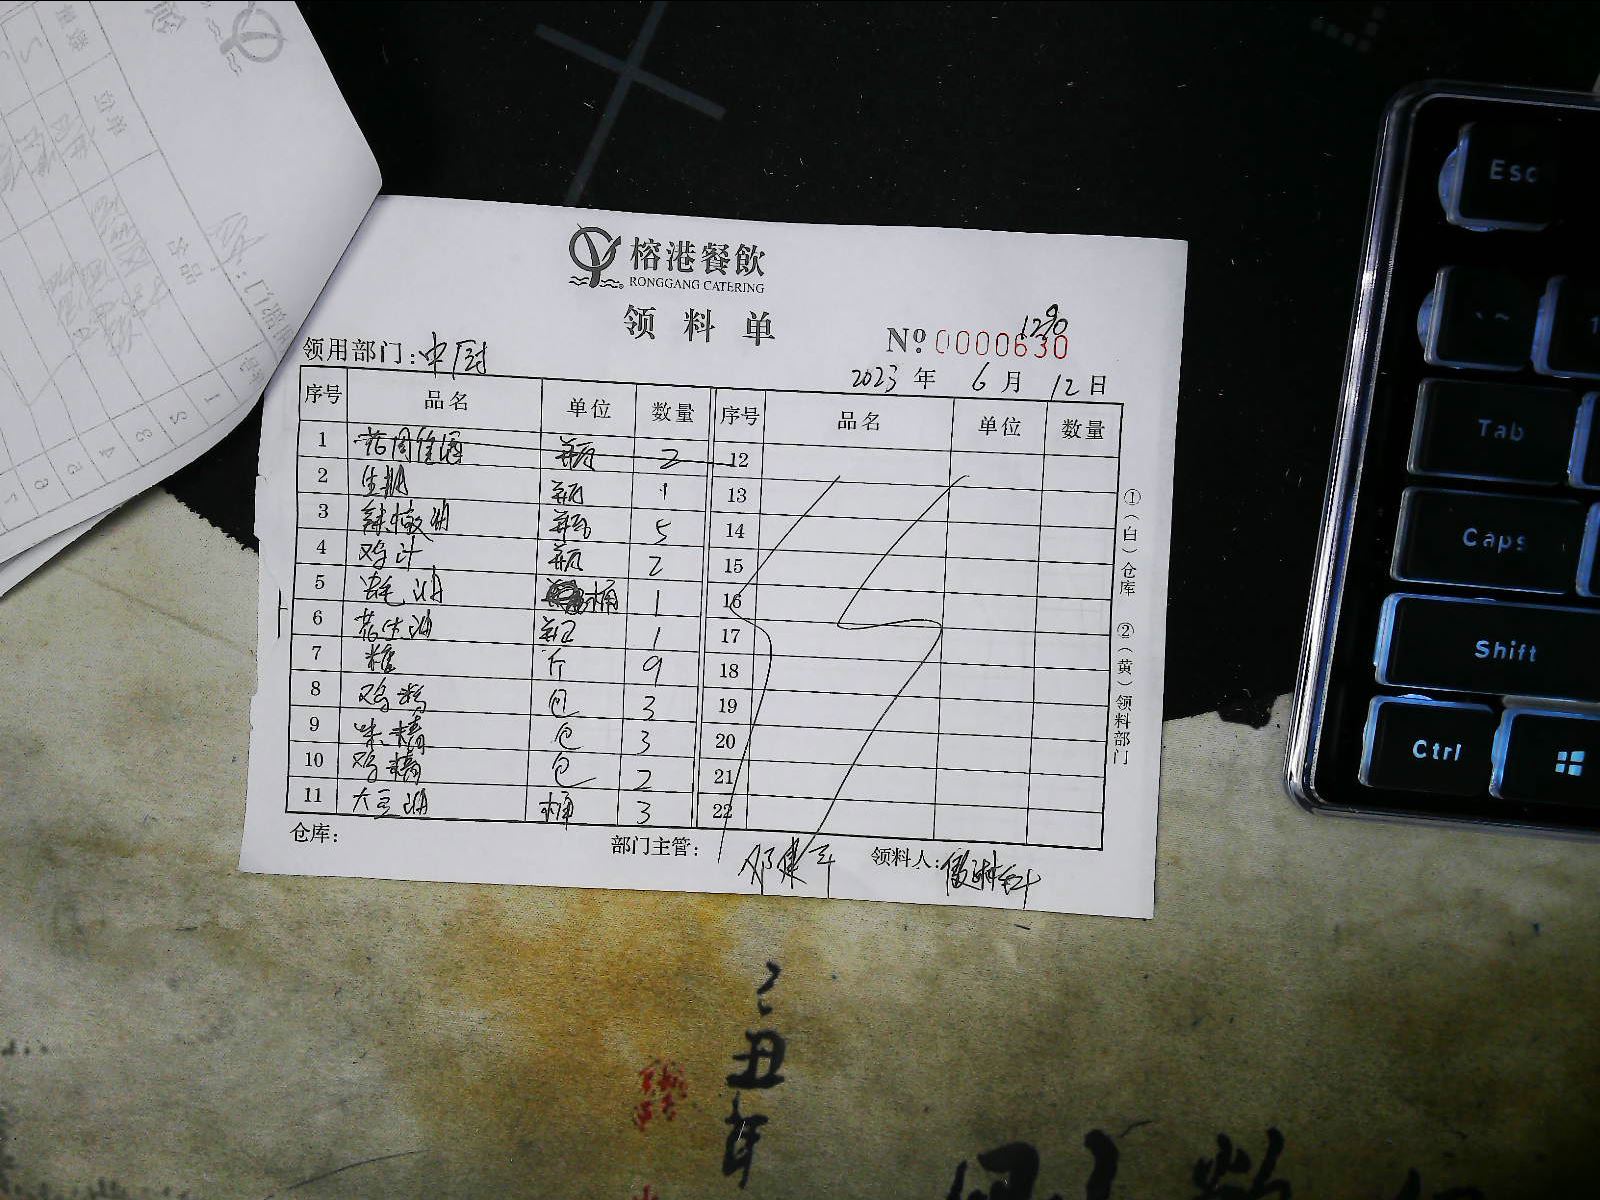 榕港餐飲
RONGGANG CATERING
领料单
1290
No. 0000630
领用部门：中厨
2023 年 6 月 12 日
序号 品名 单位 数量 序号 品名 单位 数量
1 瓶 2 12
2 生抽 瓶 1 13
3 辣椒油 瓶 5 14
4 鸡汁 瓶 2 15
5 蚝油 桶 1 16
6 花生油 1 17
7 糖 斤 9 18
8 鸡粉 包 3 19
9 味精 包 3 20
10 鸡精 包 2 21
11 大豆油 桶 3 22
①（白）仓库 ②（黄）领料部门
仓库：
部门主管：邓建军
领料人：
Esc
Tab
Caps
Shift
Ctrl
丑年